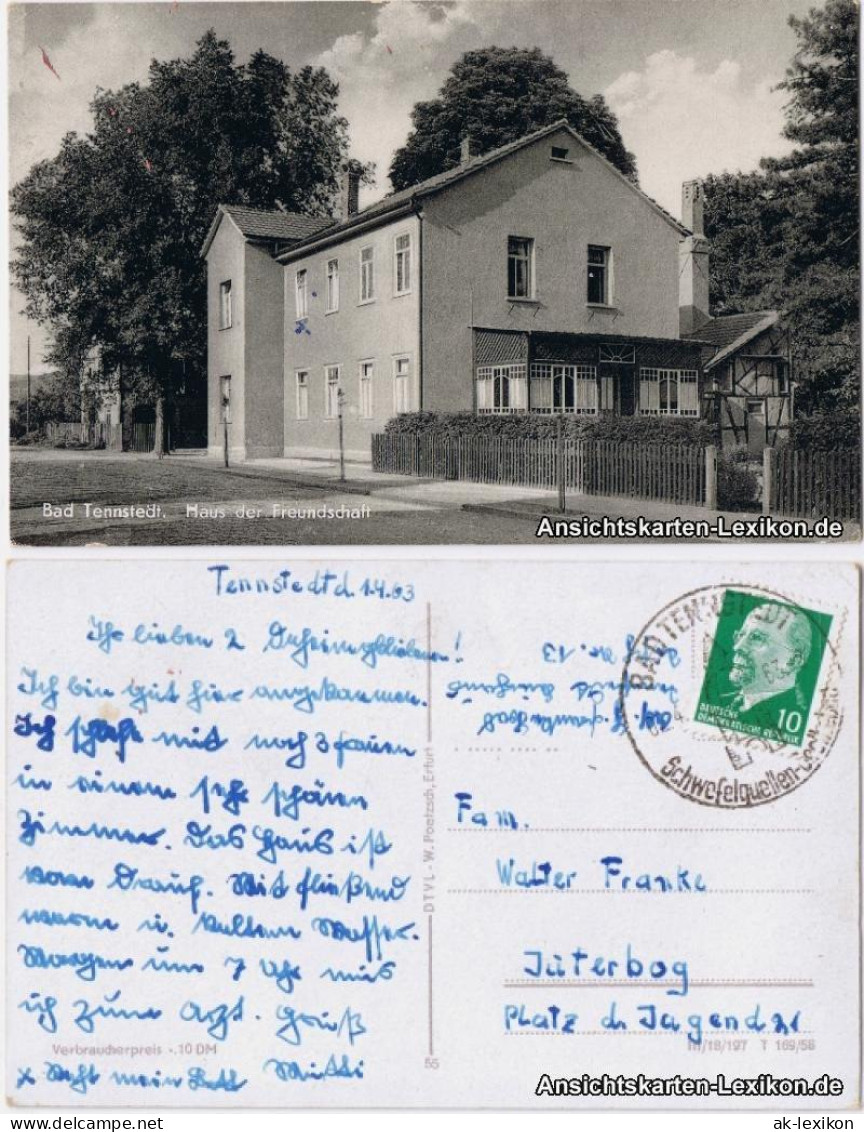 Bad Tennstedt. Haus der Freundschaft
Ansichtskarten-Lexikon.de
Tennstedt d. 1.4.63
Ihr lieben 2 Daheimgebliebenen!
Ich bin gut hier angekommen.
Ich schlafe mit noch 3 Frauen
in einem sehr schönen
Zimmer. Das Haus ist
vorn Drauf. Mit fließend
warm u. kaltem Wasser.
Morgen um 7 Uhr muß
ich zum Arzt. Gruß
Verbraucherpreis -.10 DM
x Steht mein Bett Mutti
DTVL - W. Poetzsch, Erfurt
55
Nr. 13
BAD TENNSTEDT
Schwefelquellen-
DEUTSCHE
DEMOKRATISCHE REPUBLIK
10
Fam.
Walter Franke
Jüterbog
Platz d. Jugend 21
III/18/197 T 169/58
Ansichtskarten-Lexikon.de
ak-lexikon